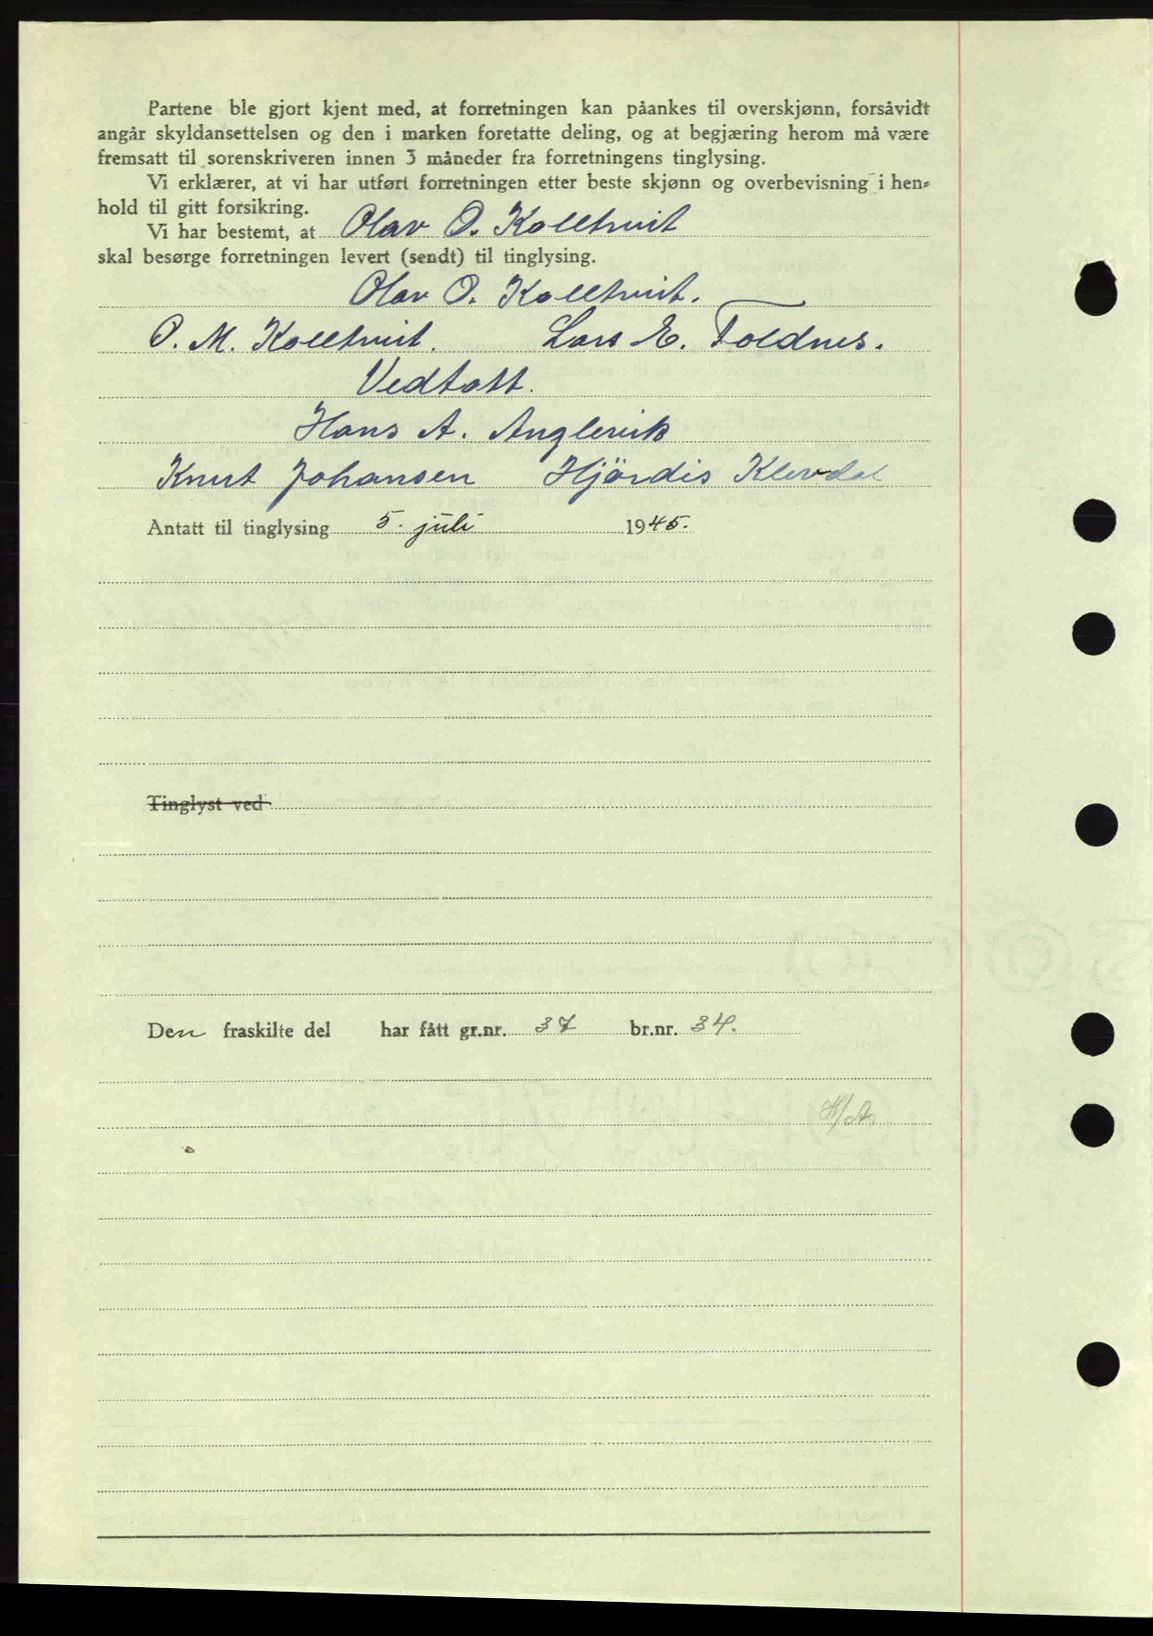 Partene ble gjort kjent med, at forretningen kan påankes til overskjønn, forsåvidt
angår skyldansettelsen og den i marken foretatte deling, og at begjæring herom må være
fremsatt til sorenskriveren innen 3 måneder fra forretningens tinglysing.
Vi erklærer, at vi har utført forretningen etter beste skjønn og overbevisning i hen=
hold til gitt forsikring.
Vi har bestemt, at Olav O. Kolltveit
skal besørge forretningen levert (sendt) til tinglysing.
Olav O. Kolltveit.
O. M. Kolltveit. Lars E. Toldnes.
Vedtatt.
Hans A. Anglevik
Knut Johansen Hjördis Klevdal
Antatt til tinglysing 5. juli 1945.
Tinglyst ved
Den fraskilte del har fått gr.nr. 37 br.nr. 34.